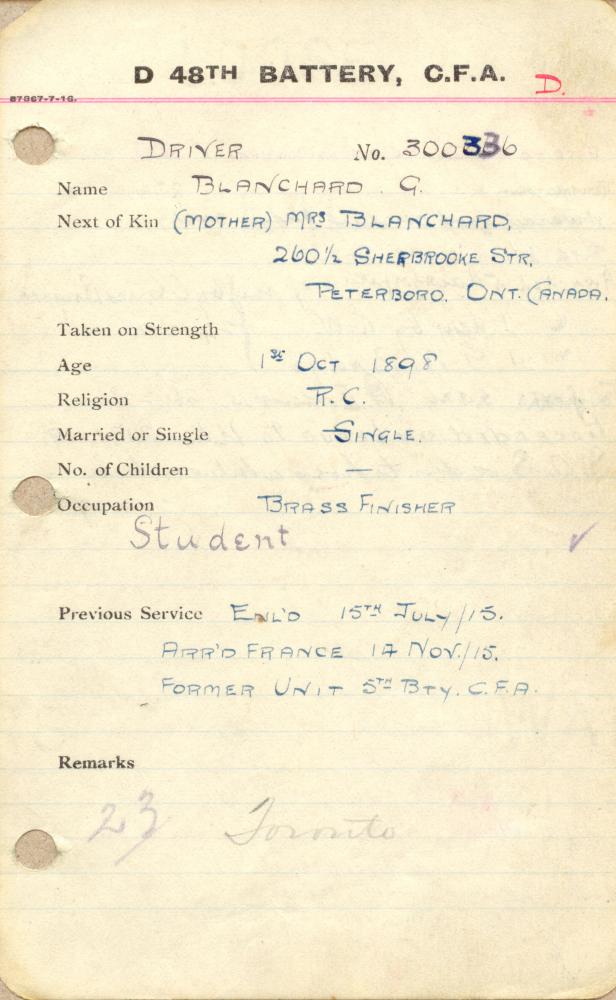 D 48TH BATTERY, C.F.A. D.
87967-7-16.
DRIVER No. 300336
Name BLANCHARD. G.
Next of Kin (MOTHER) MRS BLANCHARD,
260½ SHERBROOKE STR,
PETERBORO. ONT. CANADA.
Taken on Strength
Age 1st OCT 1898
Religion R.C.
Married or Single SINGLE.
No. of Children —
Occupation BRASS FINISHER
Student
Previous Service ENL'D 15TH JULY/15.
ARR'D FRANCE 14 NOV./15.
FORMER UNIT 5TH BTY. C.F.A.
Remarks
23 Toronto